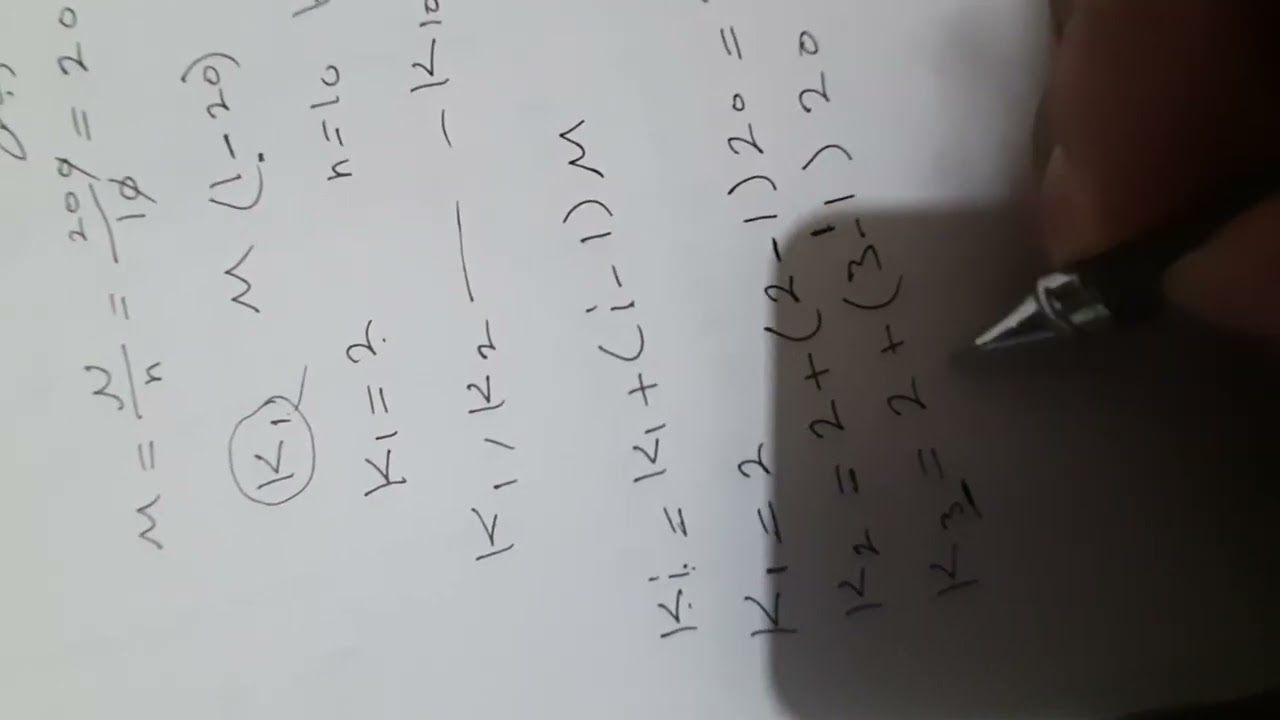 m = N/n = 200/10 = 20
K1 m (1-20)
K1 = 2 n=10
K1, K2 — – K10
Ki = K1 + (i-1) m
K1 = 2
K2 = 2 + (2-1) 20 =
K3 = 2 + (3-1) 20